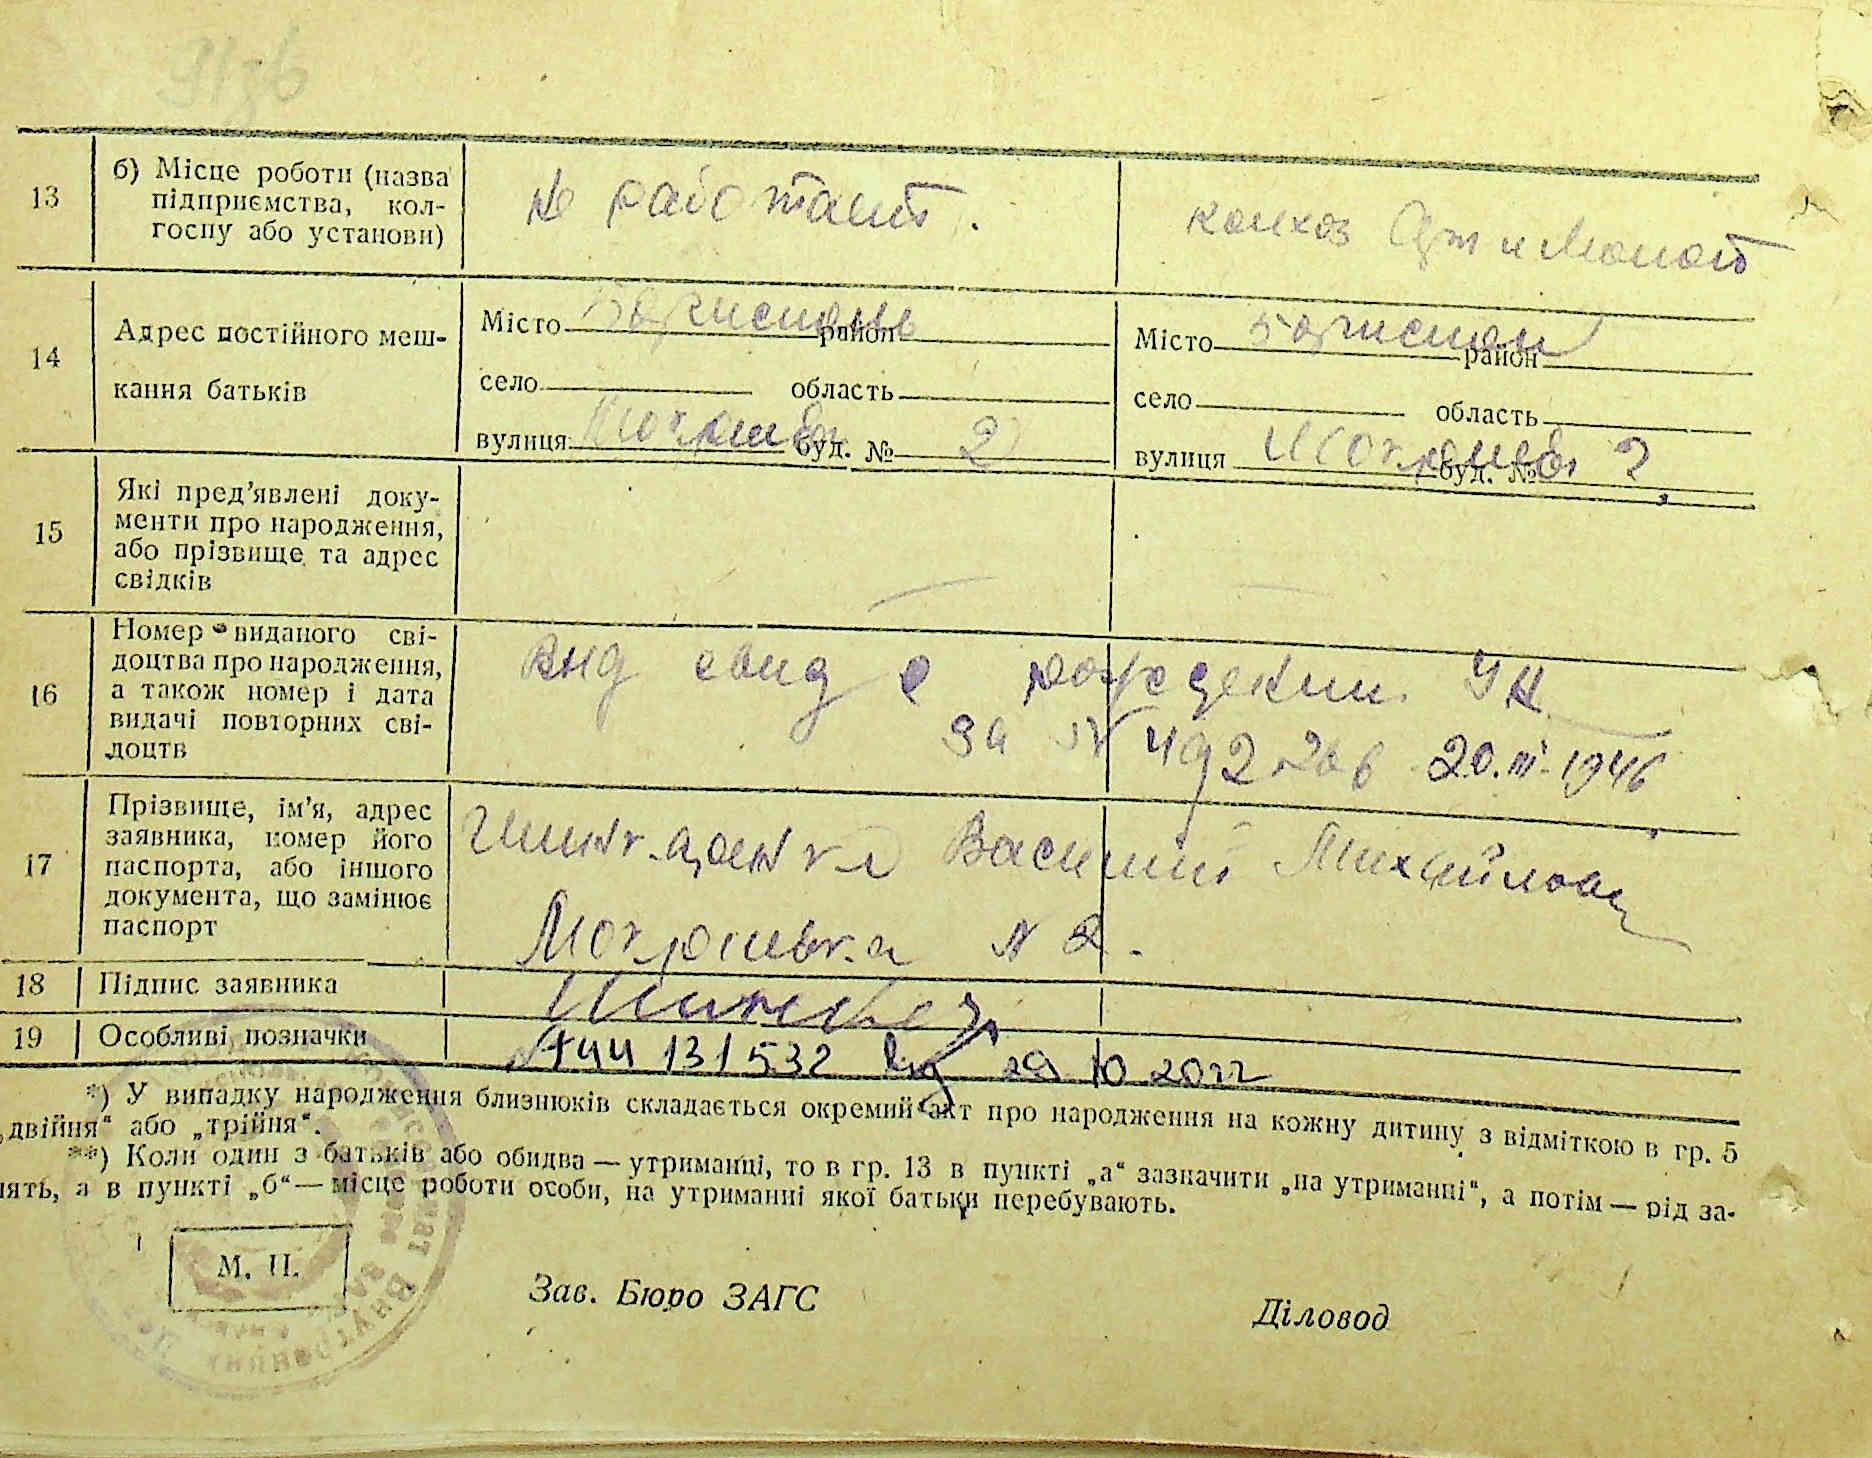 13
б) Місце роботи (назва
підприємства, кол-
госпу або установи)
не работает.
колхоз Серп и Молот
14
Адрес постійного меш-
кання батьків
Місто район
село область
вулиця буд. № 2
Місто район
село область
вулиця буд. № 2
15
Які пред’явлені доку-
менти про народження,
або прізвище та адрес
свідків
16
Номер виданого сві-
доцтва про народження,
а також номер і дата
видачі повторних сві-
доцтв
выд свид о рождении УН
за N 492266 20.III.1946
17
Прізвище, ім’я, адрес
заявника, номер його
паспорта, або іншого
документа, що замінює
паспорт
Василий Михайлович
N 2.
18 Підпис заявника
19 Особливі позначки
131532 29 10 2022
*) У випадку народження близнюків складається окремий акт про народження на кожну дитину з відміткою в гр. 5
„двійня“ або „трійня“.
**) Коли один з батьків або обидва — утриманці, то в гр. 13 в пункті „а“ зазначити „на утриманні“, а потім — рід за-
нять, а в пункті „б“ — місце роботи особи, на утриманні якої батьки перебувають.
М. П.
Зав. Бюро ЗАГС
Діловод